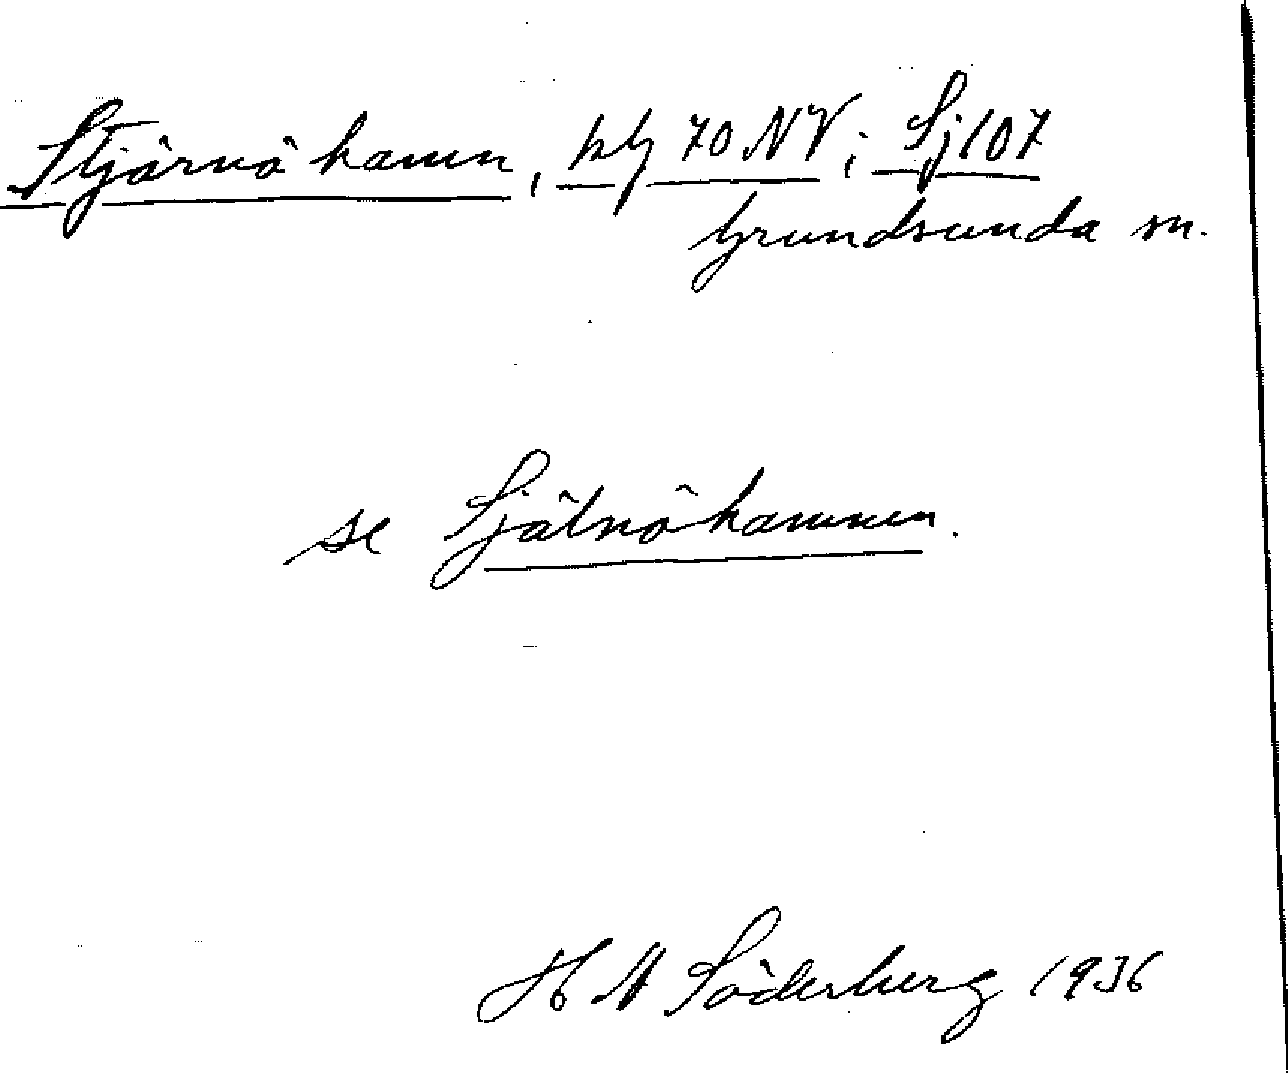 Stjärnöhamn, kbl 70 NV; Sj 107
Grundsunda sn.
se Själnöhamnen.
H N Söderberg 1936